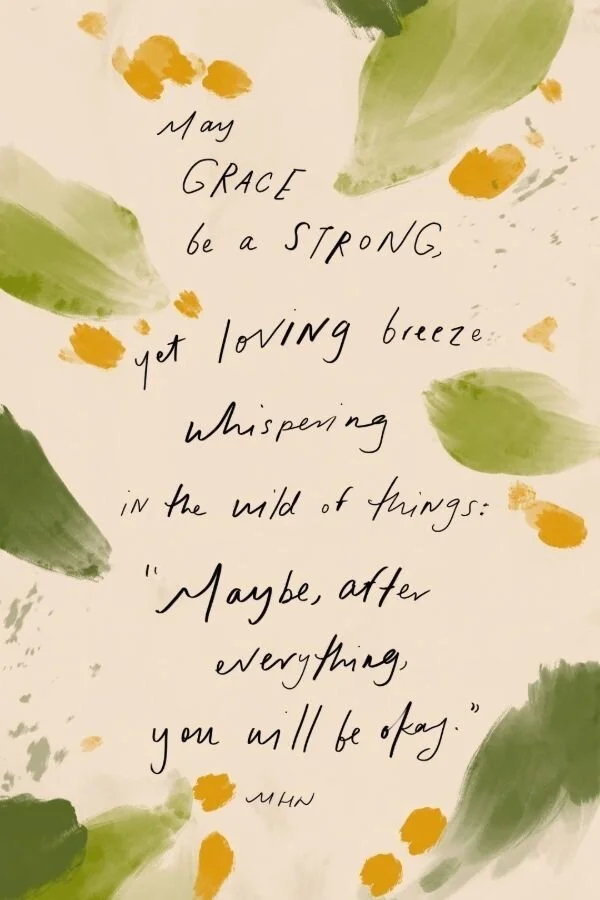 May
GRACE
be a STRONG,
yet loving breeze
whispering
in the wild of things:
"Maybe, after
everything,
you will be okay."
MHN